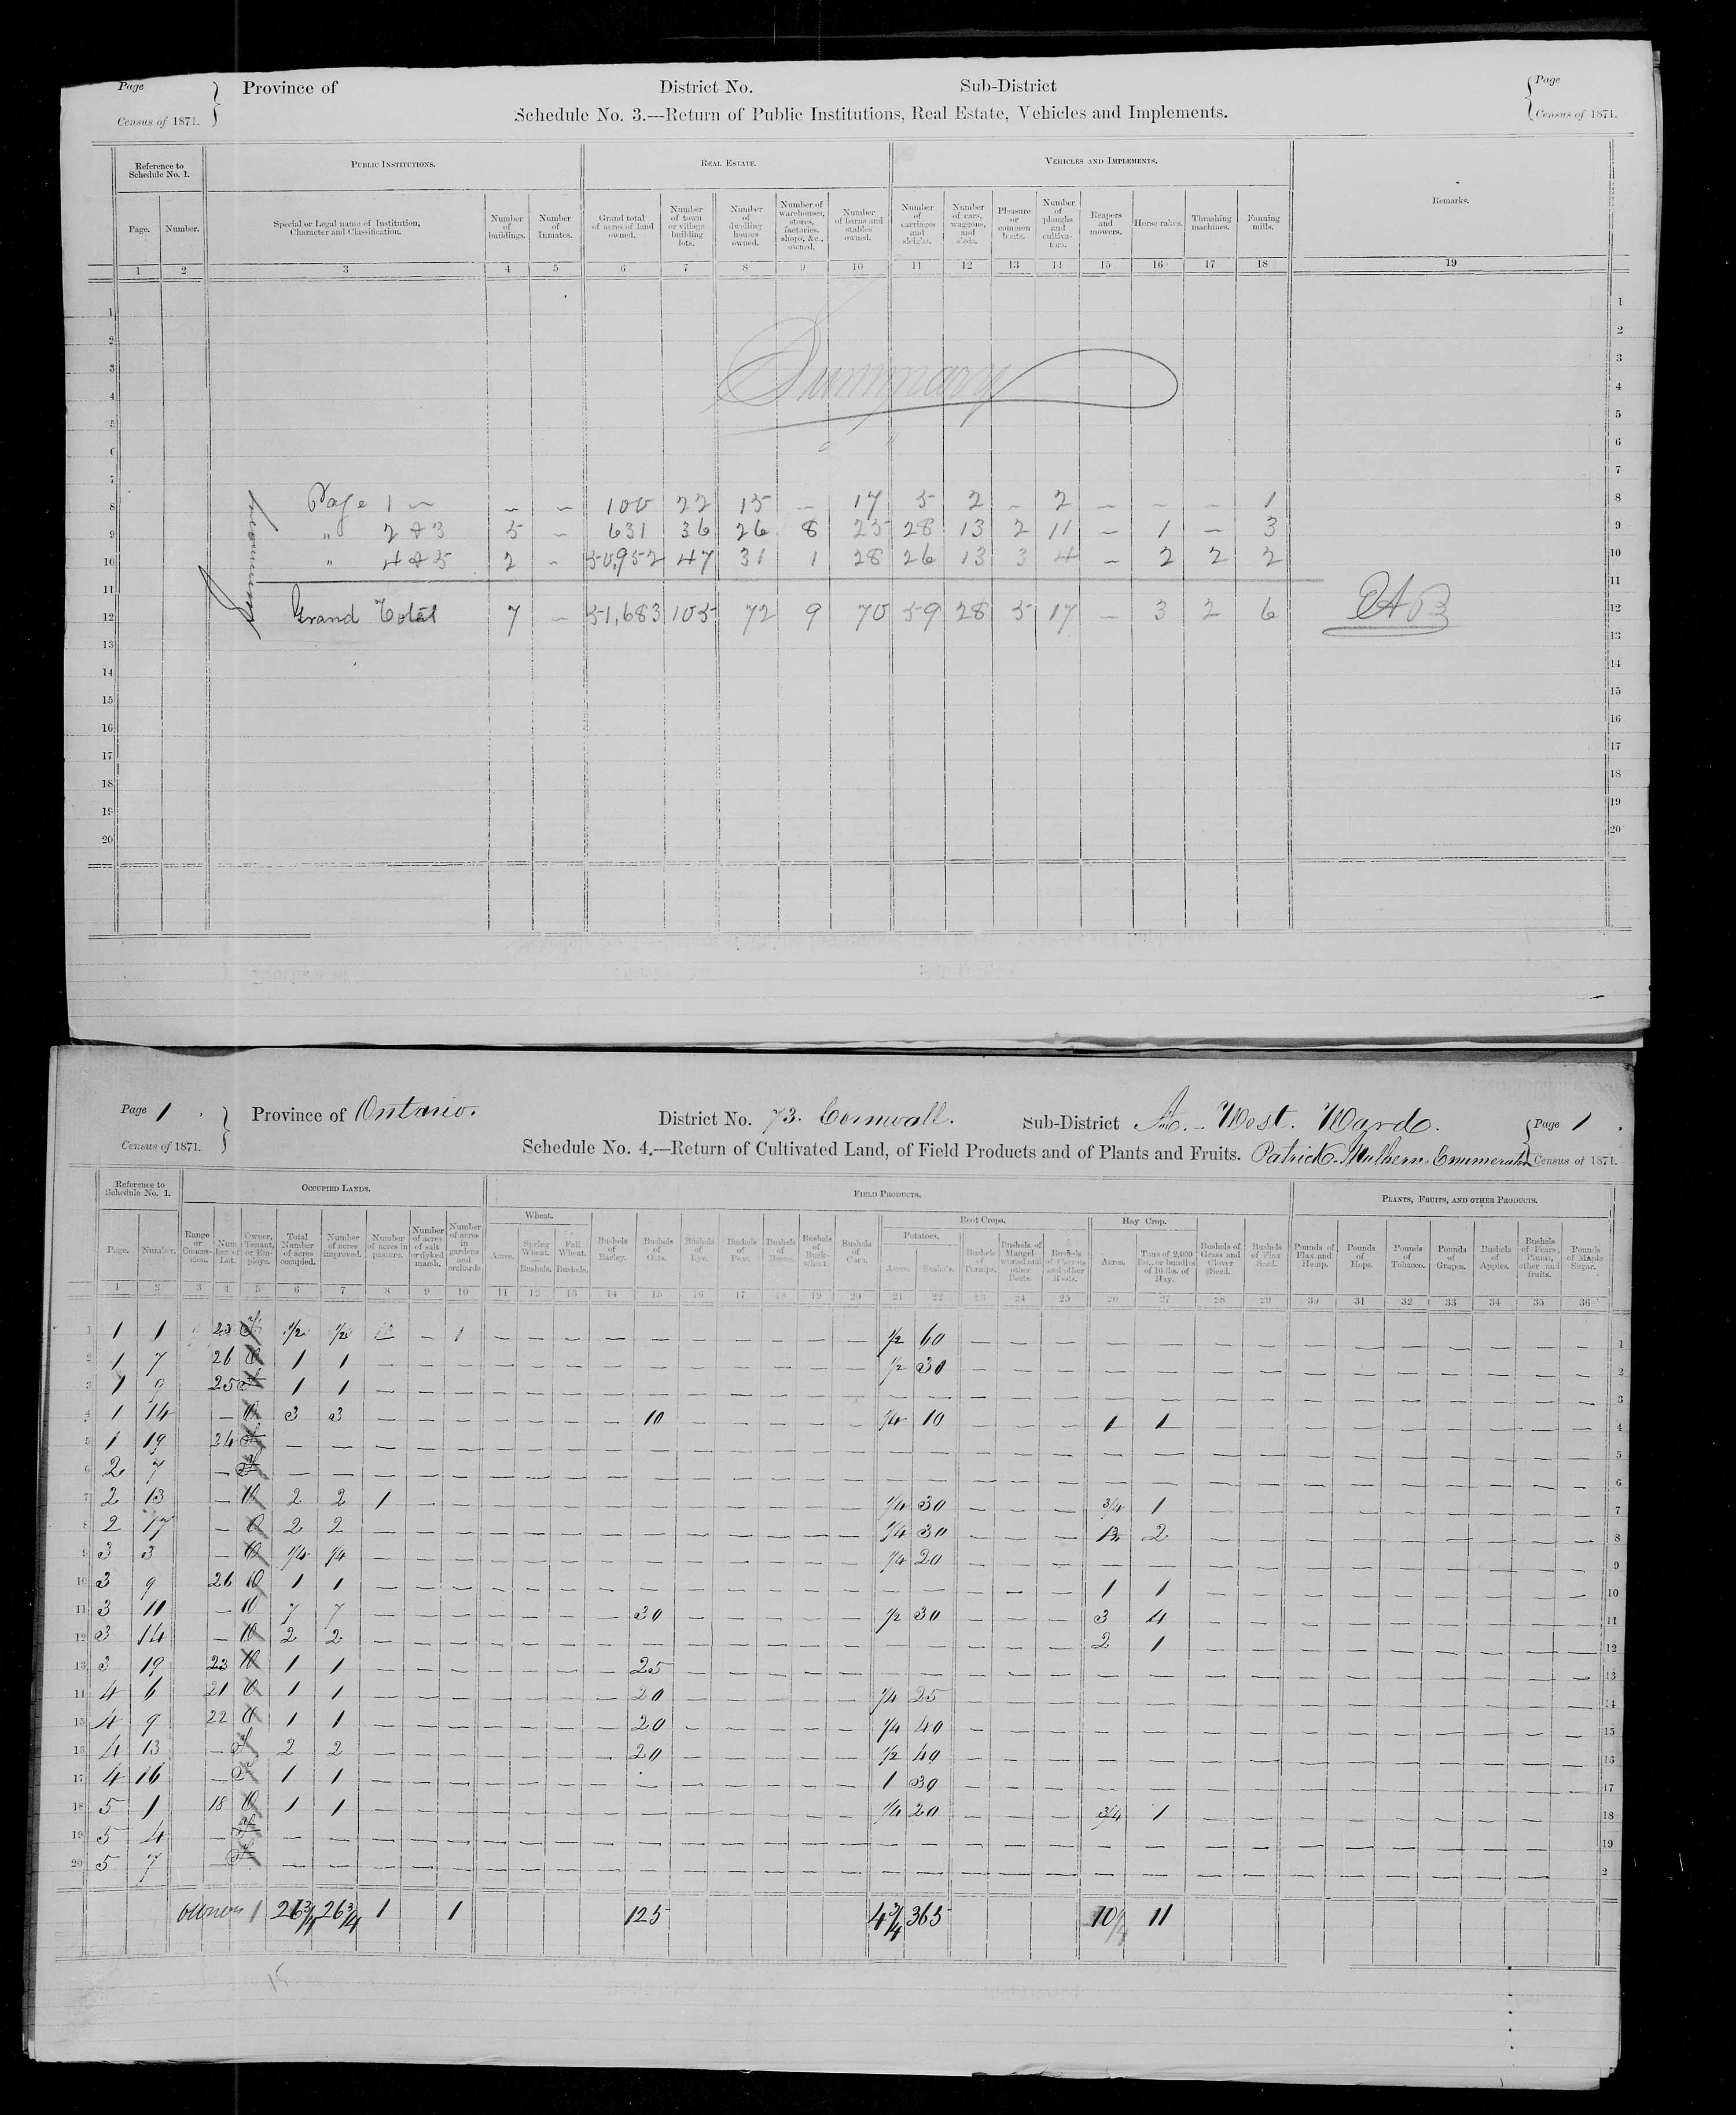 Page
Census of 1871.
Province of
District No.
Sub-District
Page
Census of 1871.
Schedule No. 3.—Return of Public Institutions, Real Estate, Vehicles and Implements.
Reference to Schedule No. 1.
PUBLIC INSTITUTIONS.
REAL ESTATE.
VEHICLES AND IMPLEMENTS.
Remarks.
Page.
Number.
Special or Legal name of Institution, Character and Classification.
Number of buildings.
Number of Inmates.
Grand total of acres of land owned.
Number of town or village building lots.
Number of dwelling houses owned.
Number of warehouses, stores, factories, shops, &c., owned.
Number of barns and stables owned.
Number of carriages and sleighs.
Number of cars, waggons, and sleds.
Pleasure or common boats.
Number of ploughs and cultivators.
Reapers and mowers.
Horse rakes.
Thrashing machines.
Fanning mills.
1 2 3 4 5 6 7 8 9 10 11 12 13 14 15 16 17 18 19
Summary
Page 1 — — — 100 22 15 — 17 5 2 — 2 — — — 1
" 2 & 3 5 — 631 36 26 8 25 28 13 2 11 — 1 — 3
" 4 & 5 2 — 50,952 47 31 1 28 26 13 3 4 — 2 2 2
Grand Total 7 — 51,683 105 72 9 70 59 28 5 17 — 3 2 6
Page 1.
Census of 1871.
Province of Ontario.
District No. 73. Cornwall.
Sub-District A. - West. Ward.
Page 1.
Census of 1871.
Schedule No. 4.—Return of Cultivated Land, of Field Products and of Plants and Fruits. Patrick Mulhern Enumerator
Reference to Schedule No. 1.
OCCUPIED LANDS.
FIELD PRODUCTS.
PLANTS, FRUITS, AND OTHER PRODUCTS.
Wheat.
Root Crops.
Potatoes.
Hay Crop.
Page.
Number.
Range or Concession.
Number of Lot.
Owner, Tenant, or Employe.
Total Number of acres occupied.
Number of acres improved.
Number of acres in pasture.
Number of acres of salt or dyked marsh.
Number of acres in gardens and orchards
Acres.
Spring Wheat. Bushels.
Fall Wheat. Bushels.
Bushels of Barley.
Bushels of Oats.
Bushels of Rye.
Bushels of Peas.
Bushels of Beans.
Bushels of Buckwheat.
Bushels of Corn.
Acres.
Bushels.
Bushels of Turnips.
Bushels of Mangel-wurzel and other Beets.
Bushels of Carrots and other Roots.
Acres.
Tons of 2,000 lbs., or bundles of 16 lbs. of Hay.
Bushels of Grass and Clover Seed.
Bushels of Flax Seed.
Pounds of Flax and Hemp.
Pounds of Hops.
Pounds of Tobacco.
Pounds of Grapes.
Bushels of Apples.
Bushels of Pears, Plums, other and fruits.
Pounds of Maple Sugar.
1 2 3 4 5 6 7 8 9 10 11 12 13 14 15 16 17 18 19 20 21 22 23 24 25 26 27 28 29 30 31 32 33 34 35 36
1 1 1 23 T 1/2 1/2 — — 1 1/2 60
2 1 7 26 O 1 1 1/2 30
3 1 9 25 T 1 1
4 1 14 — O 3 3 10 1/4 10 1 1
5 1 19 24 T — —
6 2 7 — T — —
7 2 13 — O 2 2 1 1/4 30 3/4 1
8 2 17 — O 2 2 1/4 30 2
9 3 3 — O 1/4 1/4 1/4 20
10 3 9 26 O 1 1 1 1
11 3 11 — O 7 7 30 1/2 30 3 4
12 3 14 — O 2 2 2 1
13 3 19 23 O 1 1 25
14 4 6 21 O 1 1 20 1/4 25
15 4 9 22 O 1 1 20 1/4 40
16 4 13 — T 2 2 20 1/2 40
17 4 16 — T 1 1 1 30
18 5 1 18 O 1 1 1/4 20 3/4 1
19 5 4 — T — —
20 5 7 — T — —
owners 1 26 3/4 26 3/4 1 1 125 4 3/4 365 11
15